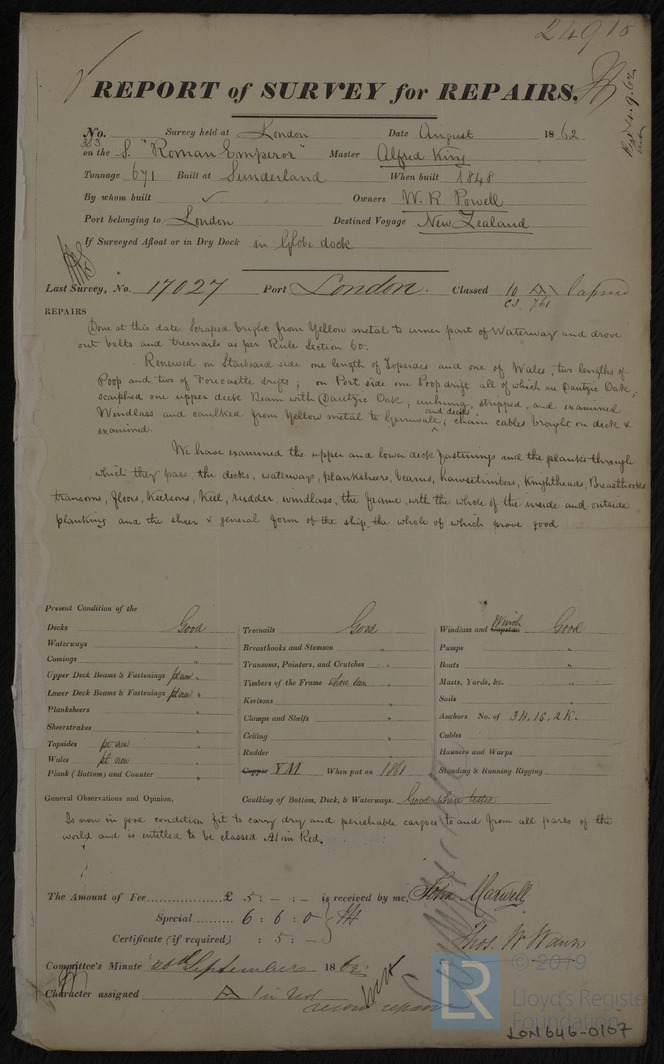 24918
REPORT of SURVEY for REPAIRS.
No. 313 Survey held at London Date August 1862
on the S. "Roman Emperor" Master Alfred King
Tonnage 671 Built at Sunderland When built 1848
By whom built Owners W. R. Powell
Port belonging to London Destined Voyage New Zealand
If Surveyed Afloat or in Dry Dock in Globe dock
Last Survey, No. 17027 Port London. Classed 10 A lapsed
C3. 7,61
REPAIRS
Done at this date Scraped bright from Yellow metal to inner part of Waterway and drove
out bolts and treenails as per Rule Section 60.
Renewed on Starboard side one length of Topsides and one of Wales, two lengths of
Poop and two of Forecastle drifts; on Port side one Poop drift all of which are Dantzic Oak,
scarphed one upper deck Beam with Dantzic Oak, unhung, stripped, and examined
Windlass and caulked from Yellow metal to Gunwale, and decks, chain cables brought on deck &
examined.
We have examined the upper and lower deck fastenings and the planks through
which they pass, the decks, waterways, planksheers, beams, hawsetimbers, Knightheads, Breasthooks
transoms, floors, keelsons, Keel, rudder windlass, the frame, with the whole of the inside and outside
planking and the sheer & general form of the ship the whole of which prove good
Present Condition of the
Decks Good
Waterways "
Comings "
Upper Deck Beams & Fastenings pt new "
Lower Deck Beams & Fastenings pt new "
Planksheers "
Sheerstrakes "
Topsides pt new "
Wales pt new "
Plank (Bottom) and Counter "
Treenails Good
Breasthooks and Stemson "
Transoms, Pointers, and Crutches "
Timbers of the Frame where seen "
Keelsons "
Clamps and Shelfs "
Ceiling "
Rudder "
Copper YM When put on 1861
Windlass and Capstan Winch Good
Pumps "
Boats "
Masts, Yards, &c. "
Sails "
Anchors No. of 3B, 1S, 2K.
Cables "
Hawsers and Warps "
Standing & Running Rigging "
General Observations and Opinion, Caulking of Bottom, Deck, & Waterways. Good when tested
Is now in good condition fit to carry dry and perishable cargoes to and from all parts of the
world and is entitled to be classed A1 in Red.
The Amount of Fee £ 5 : - : - is received by me, John Maxwell
Special 6 : 6 : 0
Certificate (if required) : 5 : -
Thos. W Wawn
Committee's Minute 20th September 1862
Character assigned A 1 in Red
© 2019
LR
Lloyd's Register
Foundation
LON646-0107